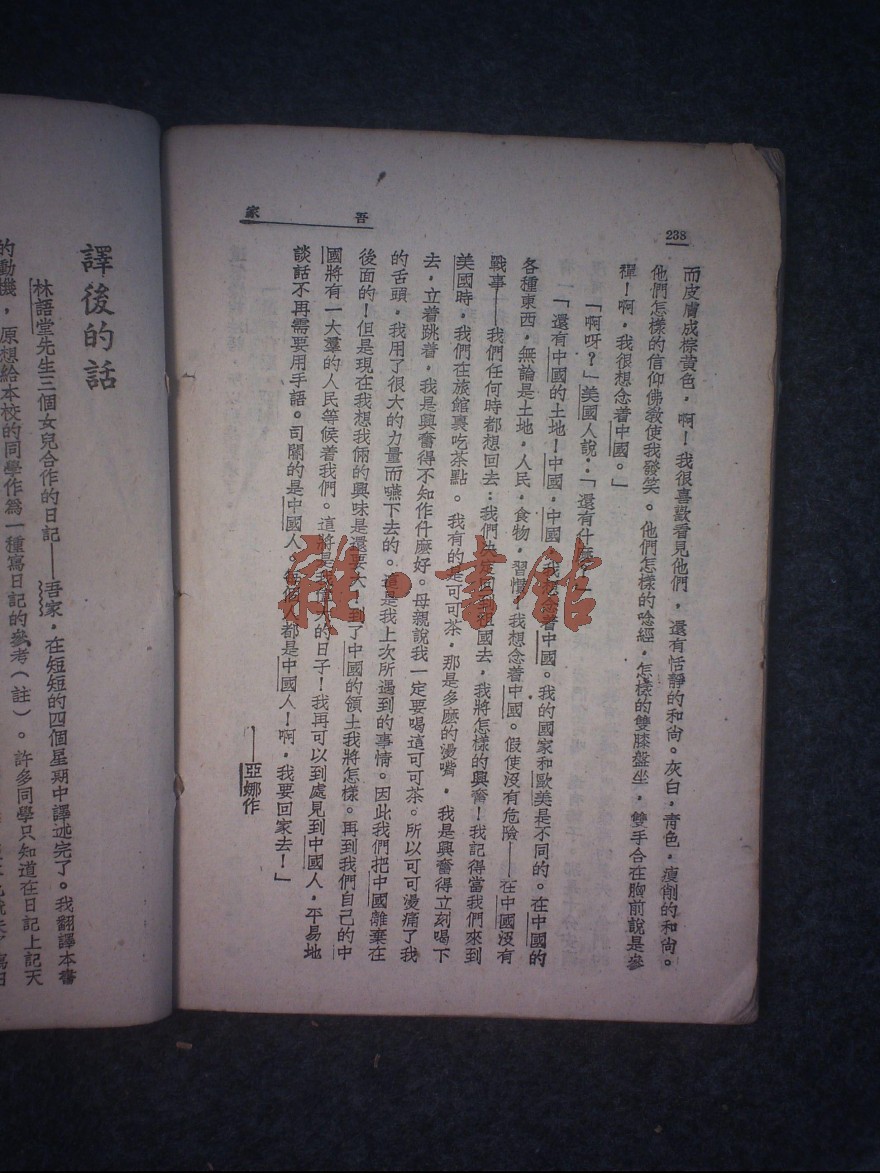 238
吾家
而皮膚成棕黃色，啊！我很喜歡看見他們，還有恬靜的和尚。灰白，青色，瘦削的和尚。
他們怎樣的信仰佛教使我發笑。他們怎樣的唸經，怎樣的雙膝盤坐，雙手合在胸前說是參
禪！啊，我很想念着中國。」
「啊呀？」美國人說：「還有什麼？」
「還有中國的土地！中國，中國，我想念着中國。我的國家和歐美是不同的。在中國的
各種東西，無論是土地，人民，食物，習慣！我想念着中國。假使沒有危險——在中國沒有
戰事——我們任何時都想回去：我們決定回到祖國去，我將怎樣的興奮！我記得當我們來到
美國時，我們在旅館裏吃茶點。我有的是可可茶，那是多麼的燙嘴，我是興奮得立刻喝下
去，立着跳着，我是興奮得不知作什麼好。母親說我一定要喝這可可茶。所以可可燙痛了我
的舌頭，我用了很大的力量而嚥下去的。這是我上次所遇到的事情。因此我們把中國離棄在
後面的！但是現在我想我倆的興味是還要大！到了中國的領土我將怎樣。再到我們自己的中
國將有一大羣的人民等候着我們。這將是我偉大的日子！我再可以到處見到中國人，平易地
談話不再需要用手語。司閽的是中國人。每個人都是中國人！啊，我要回家去！」
——亞娜作
譯後的話
林語堂先生三個女兒合作的日記——吾家，在短短的四個星期中譯述完了。我翻譯本書
的動機，原想給本校的同學作爲一種寫日記的參考（註）。許多同學只知道在日記上記天
雜·書館